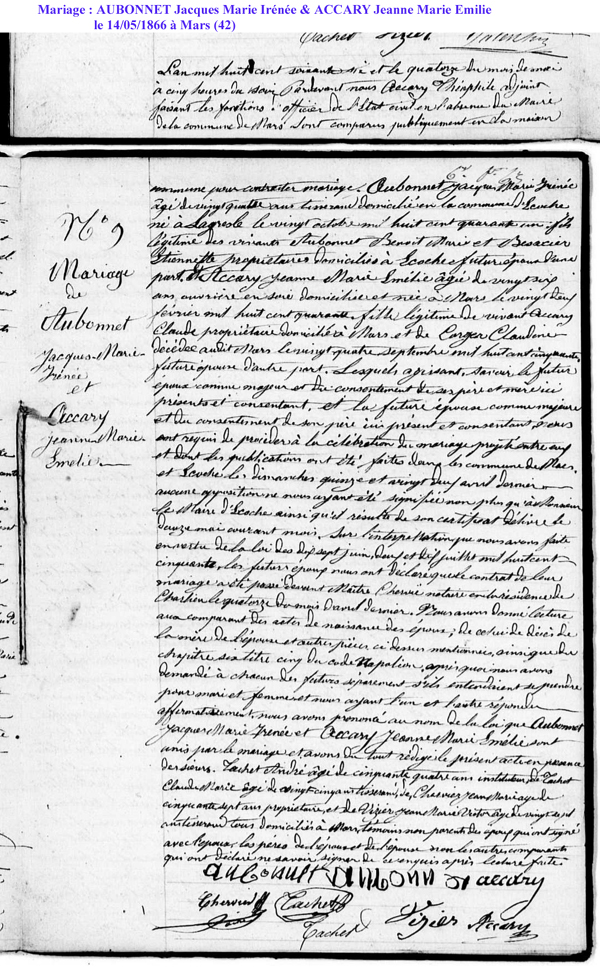 Mariage : AUBONNET Jacques Marie Irénée & ACCARY Jeanne Marie Emilie
le 14/05/1866 à Mars (42)
Tachet Vizier
L'an mil huit cent soixante six et le quatorze du mois de mai
à cinq heures du soir Pardevant nous Accary Théophile adjoint
faisant les fonctions d'officier de l'état civil en l'absence du Maire
de la commune de Mars sont comparus publiquement en la maison
commune pour contracter mariage. Aubonnet Jacques Marie Irénée
âgé de vingt quatre ans tisseur domicilié en la commune d'Ecoche
né à Lagresle le vingt octobre mil huit cent quarante un, fils
légitime des vivants Aubonnet Benoit Marie et Besacier
Etiennette propriétaires domiciliés à Ecoche futur époux d'une
part. Et Accary Jeanne Marie Emélie âgée de vingt six
ans, ouvrière en soie domiciliée et née à Mars le vingt deux
février mil huit cent quarante, fille légitime de vivant Accary
Claude propriétaire domicilié à Mars et de Claudine
décédée audit Mars le vingt quatre septembre mil huit cent cinquante,
future épouse d'autre part. Lesquels agissant, savoir le futur
époux comme majeur et du consentement de ses père et mère ici
présents et consentant, et la future épouse comme majeure
et du consentement de son père ici présent et consentant, nous
ont requis de procéder à la célébration du mariage projeté entre eux
et dont les publications ont été faites dans les commune de Mars
et Ecoche les dimanches quinze et vingt deux avril dernier
aucune opposition ne nous ayant été signifiée non plus qu'à Monsieur
le Maire d'Ecoche ainsi qu'il résulte de son certificat délivré le
douze mai courant mois. Sur l'interpellation que nous avons faite
en vertu de la loi des dix sept juin, deux et dix juillet mil huit cent
cinquante, les futurs époux nous ont déclaré que le contrat de leur
mariage a été passé devant Maître notaire en la résidence de
Charlieu le quatorze du mois d'avril dernier. Nous avons donné lecture
aux comparant des actes de naissance des époux, de celui de décès de
la mère de l'épouse et autres pièces ci dessus mentionnées, ainsi que du
chapitre six titre cinq du code Napoléon, après quoi nous avons
demandé à chacun des futurs séparement s'ils entendaient se prendre
pour mari et femme et nous ayant l'un et l'autre répondu
affirmativement, nous avons prononcé au nom de la loi que Aubonnet
Jacques Marie Irénée et Accary Jeanne Marie Emélie sont
unis par le mariage et avons du tout rédigé le présent acte en présence
des sieurs. Tachet André âgé de cinquante quatre ans instituteur, de Tachet
Claude Marie âgé de vingt cinq ans tisserand, de Jean Marie âgé de
cinquante sept ans propriétaire, et de Vizier Jean Marie Victor âgé de vingt sept
ans tisserand tous domiciliés à Mars, témoins non parent des époux qui ont signé
avec l'époux, les pères de l'époux et de l'épouse non les autres comparants
qui ont déclaré ne savoir signer de ce enquis après lecture faite
N° 9
Mariage
de
Aubonnet
Jacques-Marie-
Irénée
et
Accary
Jeanne-Marie-
Emélie
aubonnet accary
Tachet
Tachet Vizier Accary